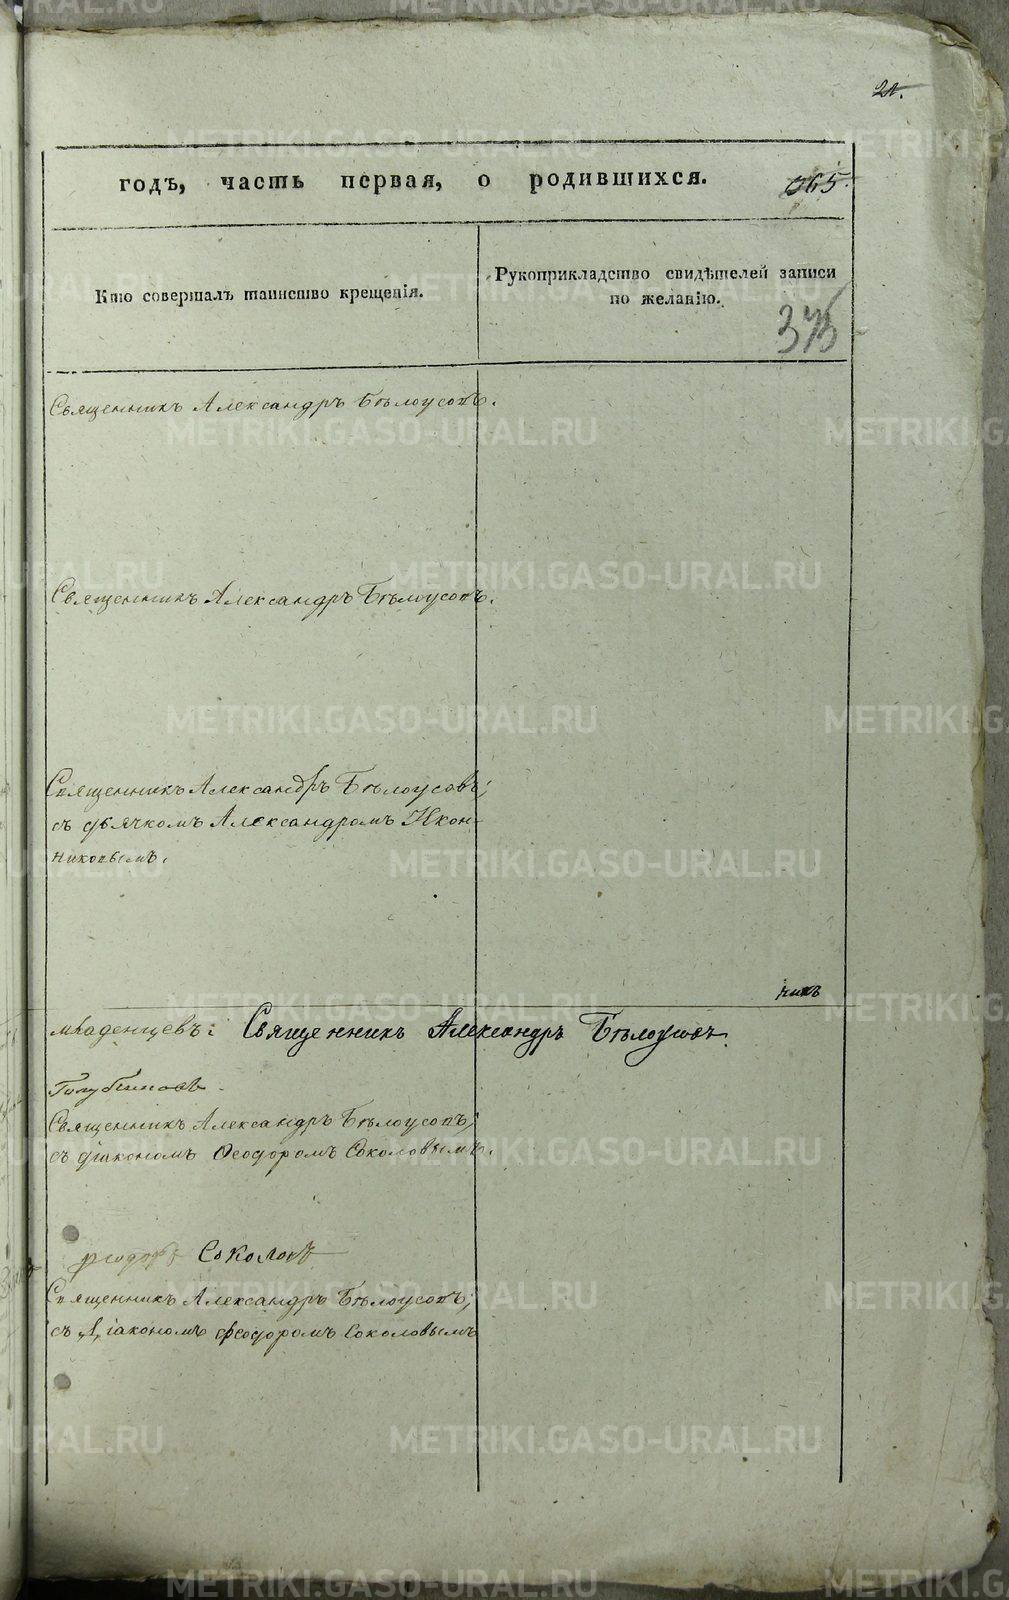 24.
годъ, часть первая, о родившихся. 365.
Кто совершалъ таинство крещенія.
Рукоприкладство свидѣтелей записи
по желанію.
375
Священникъ Александръ Бѣлоусовъ.
Священникъ Александръ Бѣлоусовъ.
Священникъ Александръ Бѣлоусовъ;
съ дьячкомъ Александромъ Икон-
никовымъ.
никъ
младенцевъ: Священникъ Александръ Бѣлоусовъ.
Голубчиковъ
Священникъ Александръ Бѣлоусовъ;
съ діакономъ Ѳеодоромъ Соколовымъ.
Соколовъ
Священникъ Александръ Бѣлоусовъ;
съ Діакономъ Ѳеодоромъ Соколовымъ
METRIKI.GASO-URAL.RU